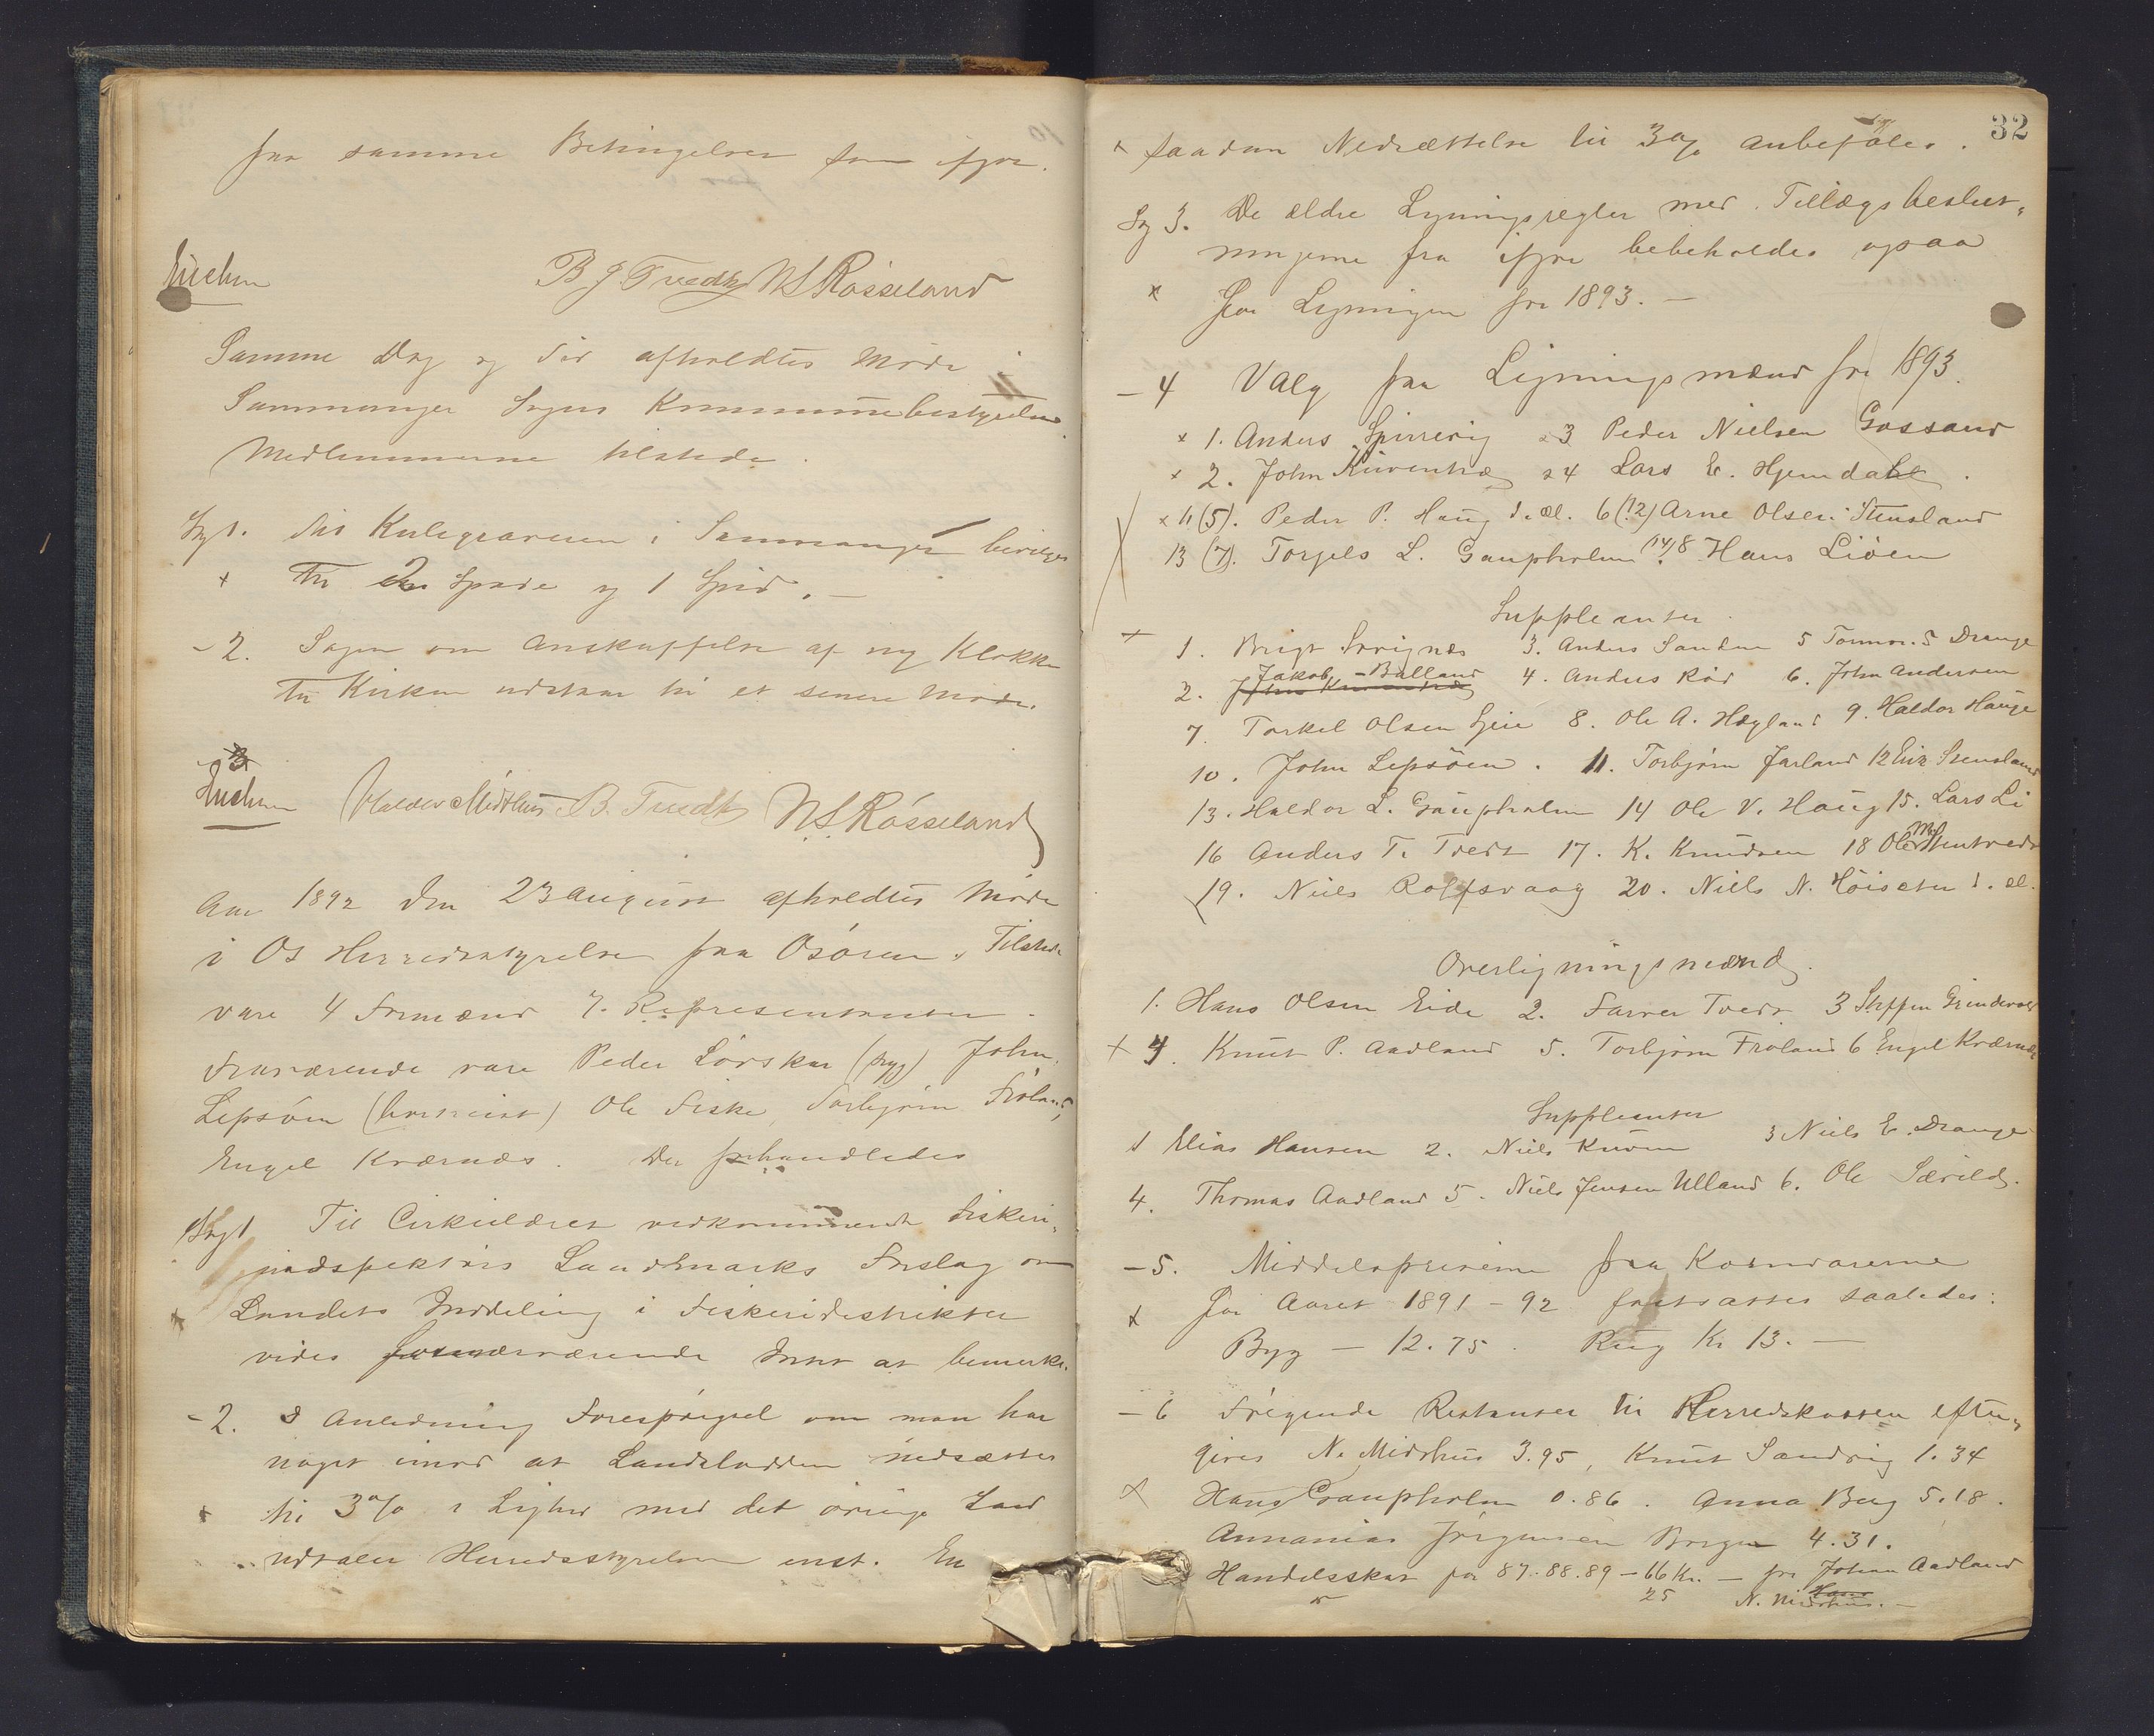 paa samme Betingelser som ifjor.
Euchen B J Tvedt NS Røsseland
Samme Dag og Tid afholdtes Møde i
Sammanger Sogns Kommunebestyrelse
Medlemmerne tilstede.
Sag 1. Til Kulegraveren i Samnanger bevilges
x til 2 Spade og 1 Spid. —
- 2. Sagen om Anskaffelse af ny Klokke
til Kirken udstaar til et senere Møde.
Euchen Haldor Midthus B. Tvedt NS Røsseland
Aar 1892 den 23 august afholdtes Møde
i Os Herredsstyrelse paa Osøren. Tilstede
vare 4 Formænd 7. Representanter.
Fraværende vare Peder Lørsker (syg) John
Lepsøen (bortreist) Ole Fiske, Torbjørn Frøland,
Engel Kværnæs. Der forhandledes
Sag 1 Til Cirkulæret vedkommende Fiskeri-
indspektørs Landmarks Forslag om
x Landets Inddeling i Fiskeridistrikter
vides Intet at bemerke.
- 2. I Anledning Forespørgsel om man har
noget imod at Landslodden nedsættes
x til 3% i Lighed med det øvrige Land
udtaler Herredsstyrelsen enst. En
32
x saadan Nedsættelse til 3% anbefales.
Sag 3. De ældre Ligningsregler med Tillægsbeslut-
ningerne fra ifjor bebeholdes ogsaa
x for Ligningen for 1893. —
- 4 Valg paa Ligningsmænd for 1893.
x 1. Anders Spirrevig x 3 Peder Nielsen Gassand
x 2. John Kuventræ x 4 Lars E. Hjemdahl.
x 11 (5). Peder P. Haug d. æl. 6 (12) Arne Olsen Stensland
13 (7). Torgels L. Gaupholm (14) 8 Hans Liøen
Suppleanter
x 1. Brigt Sørignæs 3. Anders Sanden 5 Tormo. S Drange
2. Jakob Balland 4. Anders Rød 6. John Andersen
7. Torkel Olsen Lien 8. Ole A. Hægland 9. Haldor Hauge
10. John Lepsøen. 11. Torbjørn Jarland 12 Eirik Stensland
13. Haldor L. Gaupholm 14 Ole V. Haug 15. Lars Li
16 Anders T. Tvedt 17. K. Knudsen 18 Ole M
19. Niels Rolfsvaag 20. Niels N. Høiseter d. æl.
Overligningsmænd.
1. Hans Olsen Eide 2. Farver Tvedt 3 Steffen Grindevold
x 4. Knut P. Aadland 5. Torbjørn Frøland 6 Engel Kværnæs
Suppleanter
1 Elias Hansen 2. Niels Kuven 3 Niels E. Drange
4. Thomas Aadland 5. Niels Jensen Ulland 6. Ole Særvold.
- 5. Middelspriserne paa Kornvarerne
x for Aaret 1891-92 fastsattes saaledes:
Byg — 12.75. Rug Kr 13. —
- 6 Følgende Restanser til Herredskassen efter-
gives N. Midthus 3.95, Knut Sandvig 1.34
x Hans Gaupholm 0.86. Anna Berg 5.18.
Annanias Jørgensen Borgen 4.31.
Handelsskat for 87.88.89 — 66 Kr. — for Johan Aadland
25 N. Midthus. —